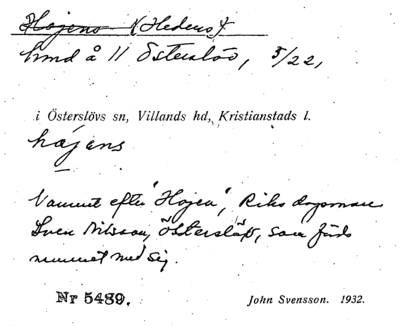 Hojens (Hedens)
hmd å 11 Österslöv, 5/22,
i Österslövs sn, Villands hd, Kristianstads l.
hajens
Namnet efter "Hojen", Riksdagsman
Sven Nilsson, Österslöv, som förde
namnet med sig.
Nr 5489. John Svensson. 1932.